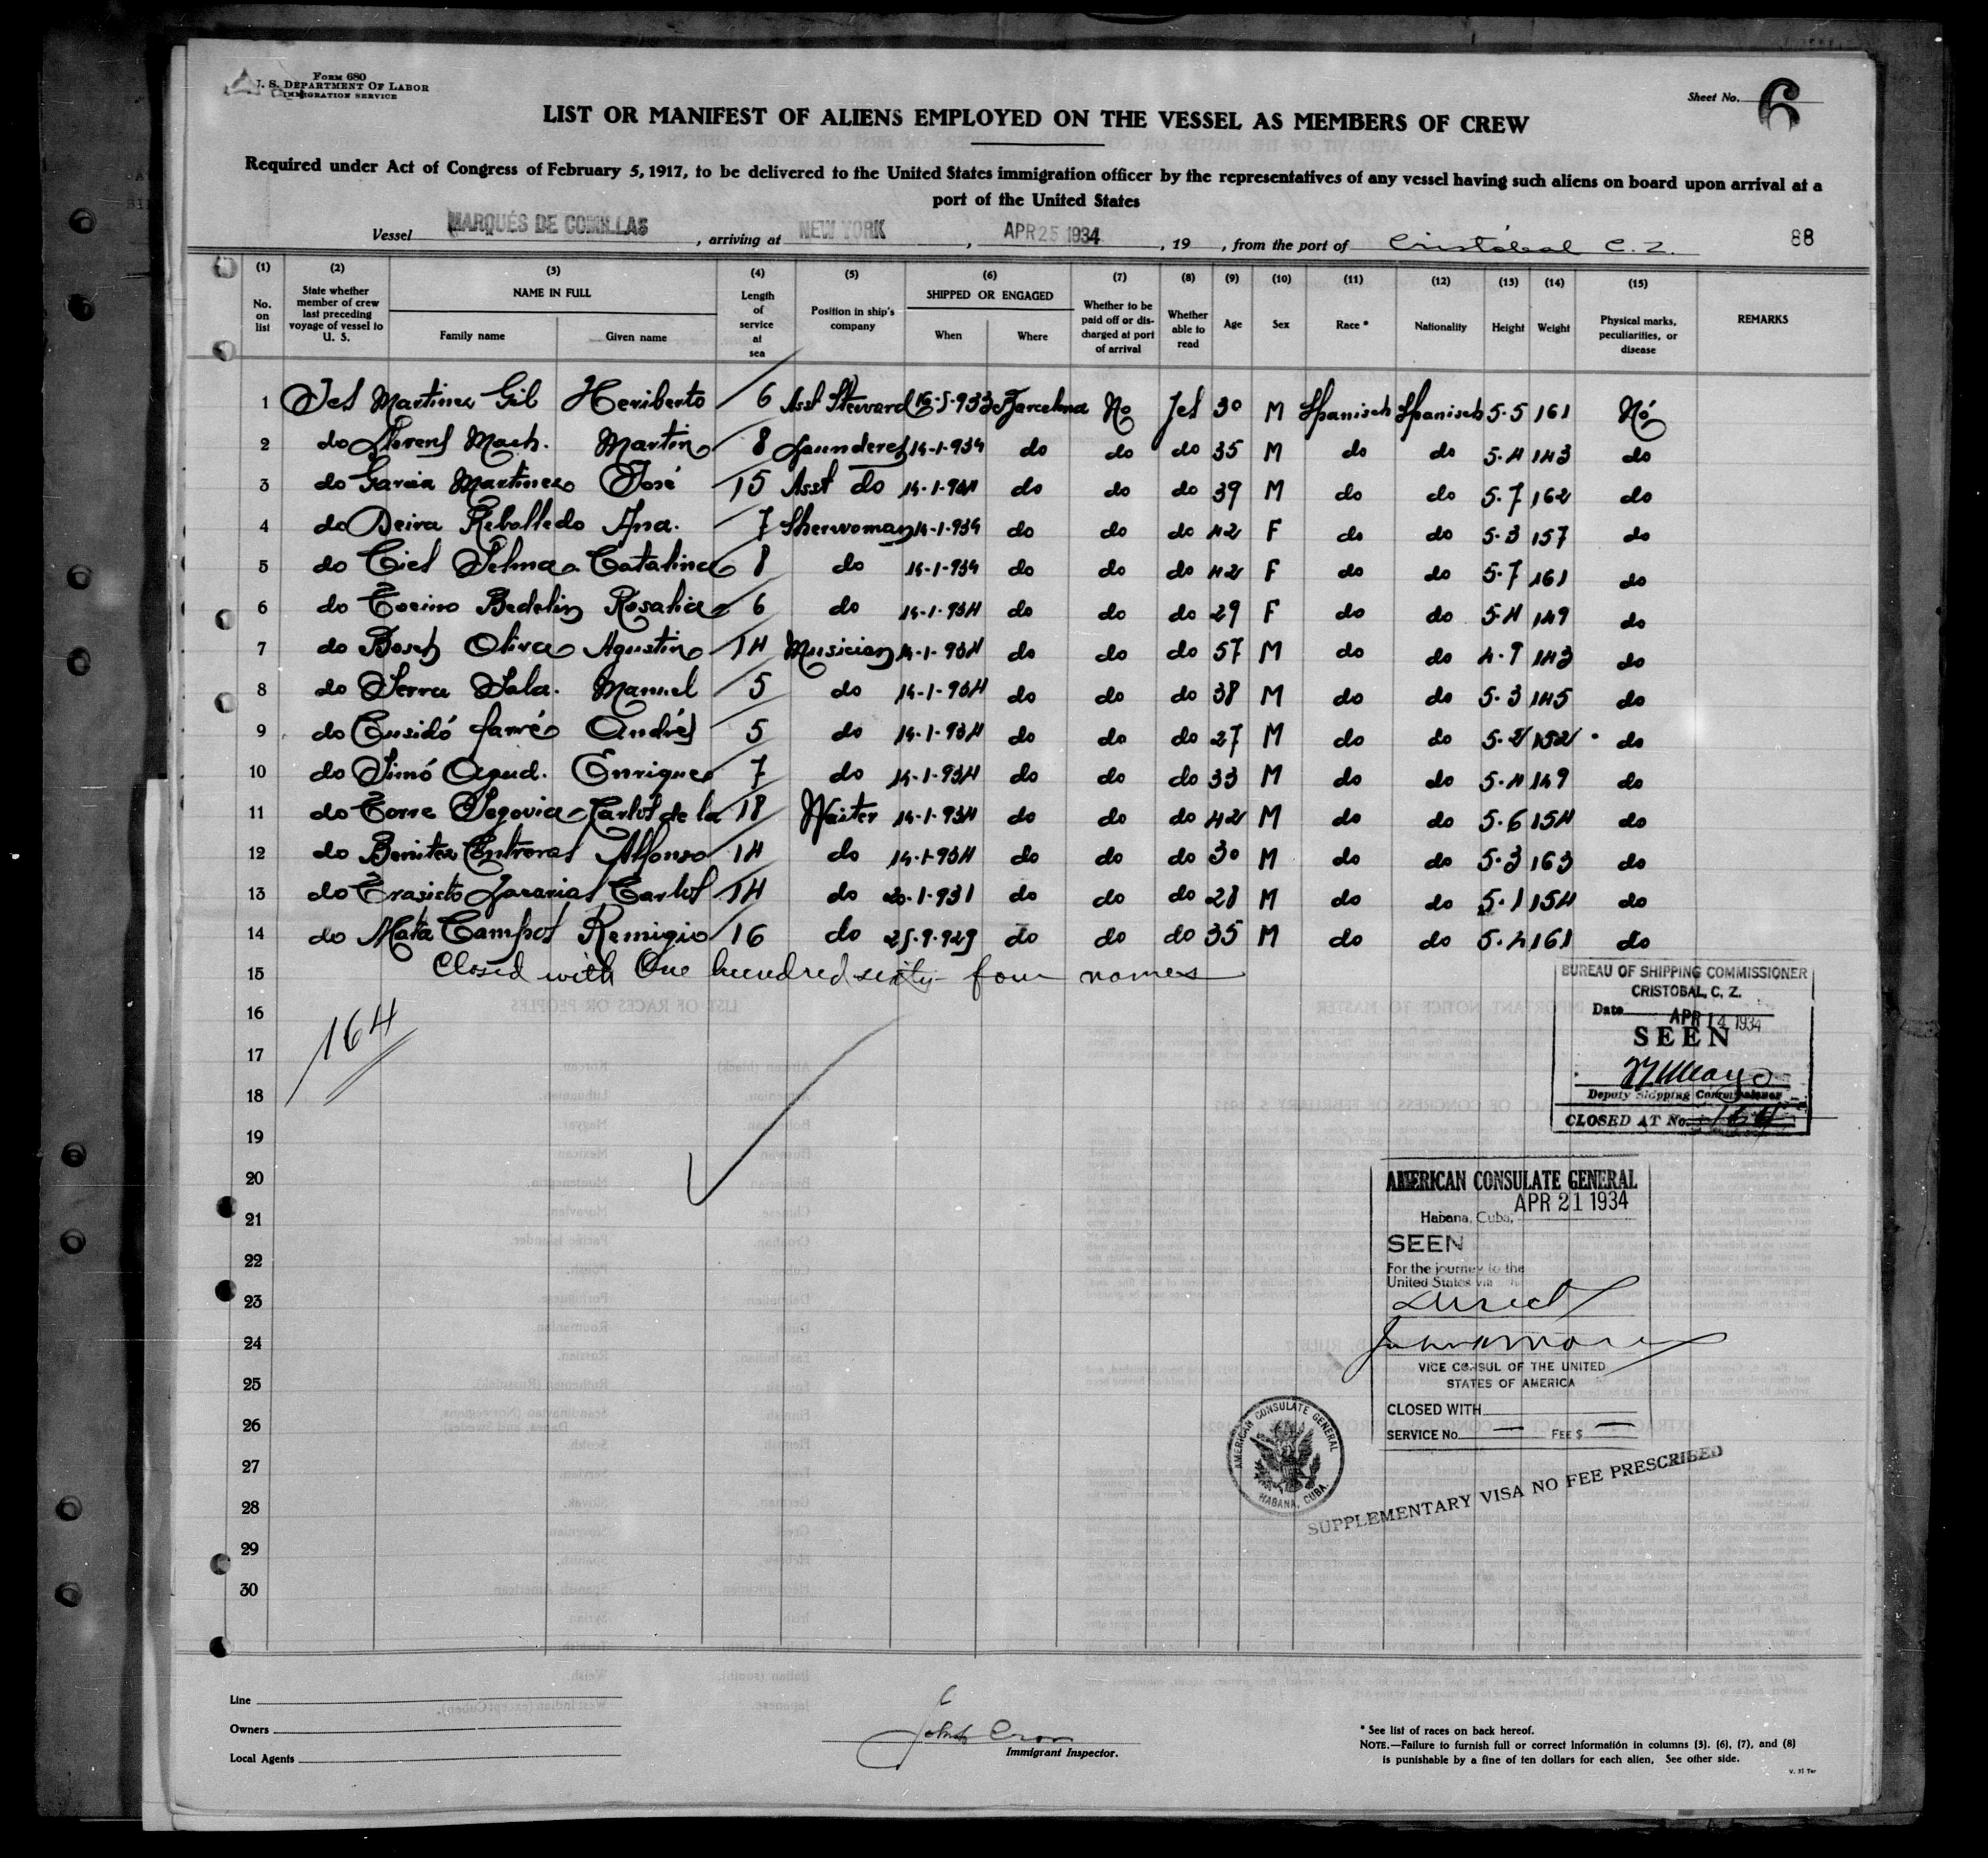 Form 680
U. S. DEPARTMENT OF LABOR
IMMIGRATION SERVICE
Sheet No. 6
LIST OR MANIFEST OF ALIENS EMPLOYED ON THE VESSEL AS MEMBERS OF CREW
Required under Act of Congress of February 5, 1917, to be delivered to the United States immigration officer by the representatives of any vessel having such aliens on board upon arrival at a
port of the United States
Vessel MARQUÉS DE COMILLAS, arriving at NEW YORK, APR 25 1934, 19 , from the port of Cristóbal C. Z. 88
(1) (2) (3) (4) (5) (6) (7) (8) (9) (10) (11) (12) (13) (14) (15)
No. on list State whether member of crew last preceding voyage of vessel to U. S. NAME IN FULL Family name Given name Length of service at sea Position in ship's company SHIPPED OR ENGAGED When Where Whether to be paid off or discharged at port of arrival Whether able to read Age Sex Race * Nationality Height Weight Physical marks, peculiarities, or disease REMARKS
1 Yes Martinez Gil Heriberto 6 Asst Steward 16-5-933 Barcelona No Yes 30 M Spanisch Spanisch 5.5 161 Nó
2 do Llorens Mach. Martin 8 Launderer 14-1-934 do do do 35 M do do 5.4 143 do
3 do Garcia Martinez José 15 Asst do 14-1-934 do do do 39 M do do 5.7 162 do
4 do Deira Rebolledo Ana. 7 14-1-934 do do do 42 F do do 5.3 157 do
5 do Ciel Catalina 8 do 14-1-934 do do do 42 F do do 5.7 161 do
6 do Rosalia 6 do 14-1-934 do do do 29 F do do 5.4 149 do
7 do Bosch Oliva Agustin 14 Musician 14-1-934 do do do 57 M do do 4.9 143 do
8 do Serra Sala. Manuel 5 do 14-1-934 do do do 38 M do do 5.3 145 do
9 do Cusidó Farré Andrés 5 do 14-1-934 do do do 27 M do do 5.2 152 do
10 do Simó Agud. Enrique 7 do 14-1-934 do do do 33 M do do 5.4 149 do
11 do Torre Segovia Carlos de la 18 Waiter 14-1-934 do do do 42 M do do 5.6 154 do
12 do Benitez Contreras Alfonso 14 do 14-1-934 do do do 30 M do do 5.3 163 do
13 do Carlos 14 do 20-1-931 do do do 28 M do do 5.1 154 do
14 do Mata Campos Remigio 16 do 25-9-929 do do do 35 M do do 5.4 161 do
15 Closed with One hundred sixty four names
16
164
17
18
19
20
21
22
23
24
25
26
27
28
29
30
BUREAU OF SHIPPING COMMISSIONER
CRISTOBAL, C. Z.
Date APR 14 1934
SEEN
Deputy Shipping Commissioner
CLOSED AT No. 164
AMERICAN CONSULATE GENERAL
APR 21 1934
Habana, Cuba,
SEEN
For the journey to the
United States via
Direct
VICE CONSUL OF THE UNITED
STATES OF AMERICA
CLOSED WITH
SERVICE No. — FEE $ —
AMERICAN CONSULATE GENERAL HABANA, CUBA.
SUPPLEMENTARY VISA NO FEE PRESCRIBED
Line
Owners
Local Agents
John
Immigrant Inspector.
* See list of races on back hereof.
NOTE.—Failure to furnish full or correct information in columns (3), (6), (7), and (8)
is punishable by a fine of ten dollars for each alien, See other side.